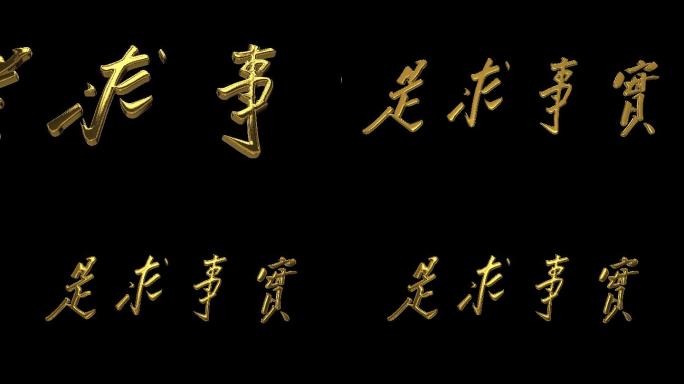 事求
實事求是
實事求是
實事求是